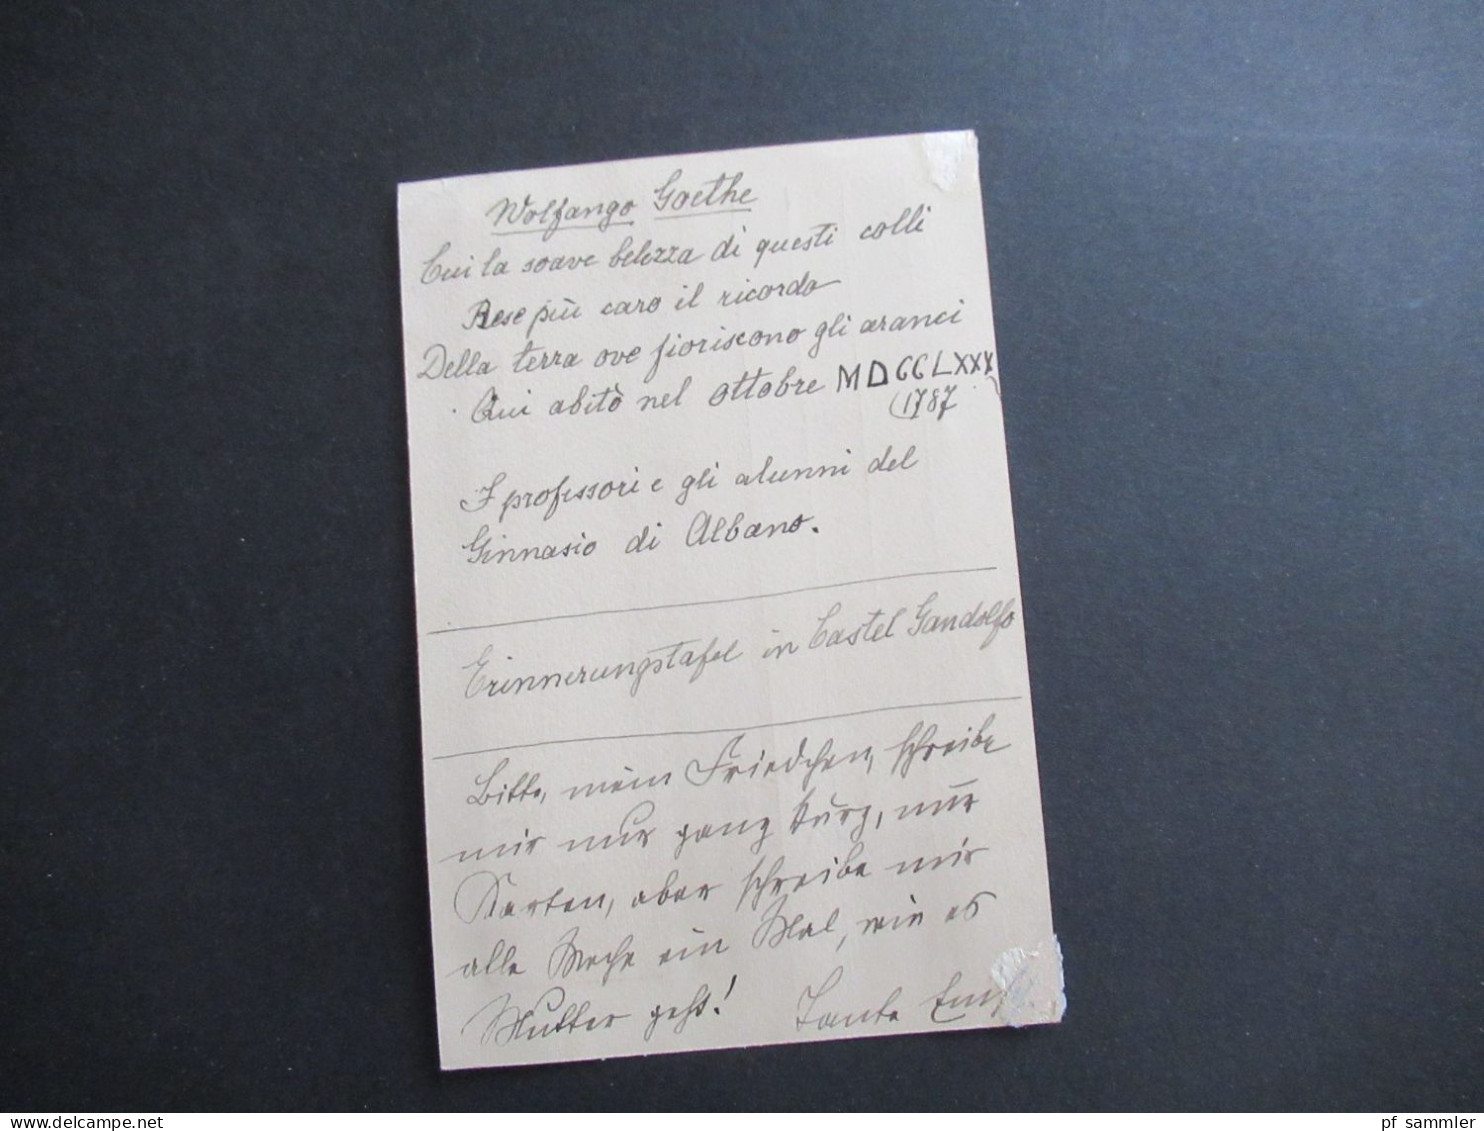 Wolfango Goethe
Cui la soave belezza di questi colli
Rese più caro il ricordo
Della terra ove fioriscono gli aranci
Qui abitò nel ottobre MDCCLXXX
(1787
I professori e gli alunni del
Ginnasio di Albano.
Erinnerungstafel in Castel Gandolfo
Bitte, mein Friedchen, schreibe
mir nur ganz kurz, nur
Karten, aber schreibe mir
alle Woche ein Mal, wie es
Mutter geht! Tante
www.delcampe.net
pf_sammler